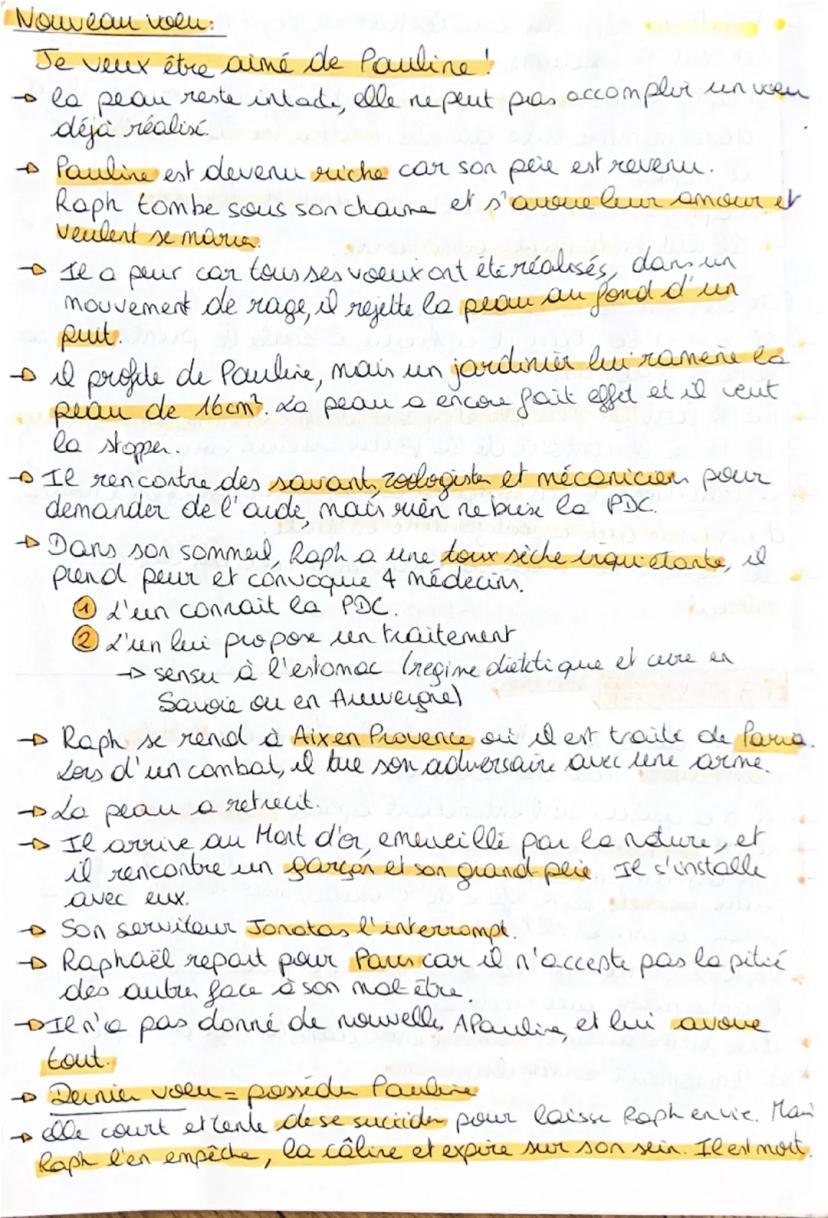 Nouveau voeu:
Je veux être aimé de Pauline !
→ la peau reste intacte, elle ne peut pas accomplir un voeu
déjà réalisé.
→ Pauline est devenu riche car son père est revenu.
Raph tombe sous son charme et s'avoue leur amour et
veulent se marier.
→ Il a peur car tous ses voeux ont été réalisés, dans un
mouvement de rage, il rejette la peau au fond d'un
puit.
→ il profite de Pauline, mais un jardinier lui ramene la
peau de 16cm². La peau a encore fait effet et il veut
la stopper.
→ Il rencontre des savant, zoologiste et mécanicien pour
demander de l'aide, mais rien ne brise la PDC.
→ Dans son sommeil, Raph a une toux sèche inquiétante, il
prend peur et convoque 4 médecins.
① L'un connait la PDC.
② L'un lui propose un traitement
→ sensu à l'estomac (regime diététique et cure en
Savoie ou en Auvergne)
→ Raph se rend à Aix en Provence où il est traité de Paria.
Lors d'un combat, il tue son adversaire avec une arme.
→ La peau a retrecit.
→ Il arrive au Mont d'or, emerveillé par la nature, et
il rencontre un garçon et son grand-père. Il s'installe
avec eux.
→ Son serviteur Jonatas l'interrompt.
→ Raphaël repart pour Paris car il n'accepte pas la pitié
des autre face à son mal-être.
→ Il n'a pas donné de nouvelle A Pauline, et lui avoue
tout.
→ Dernier voeu = posséder Pauline
→ elle court et tente de se suicider pour laisse Raph en vie. Mais
Raph l'en empêche, la câline et expire sur son sein. Il est mort.